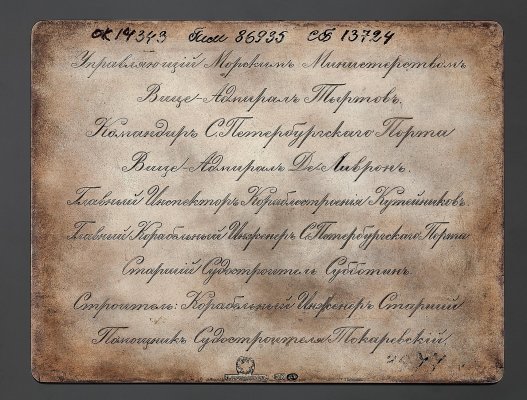 ОК 14343 Пим 86935 СВ 13724
Управляющій Морскимъ Министерствомъ
Вице-Адмиралъ Тыртовъ.
Командиръ С.Петербургскаго Порта
Вице-Адмиралъ Де-Ливронъ.
Главный Инспекторъ Кораблестроенія Кутейниковъ
Главный Корабельный Инженеръ С.Петербургскаго Порта
Старшій Судостроитель Субботинъ.
Строитель: Корабельный Инженеръ Старшій
Помощникъ Судостроителя Токаревскій.